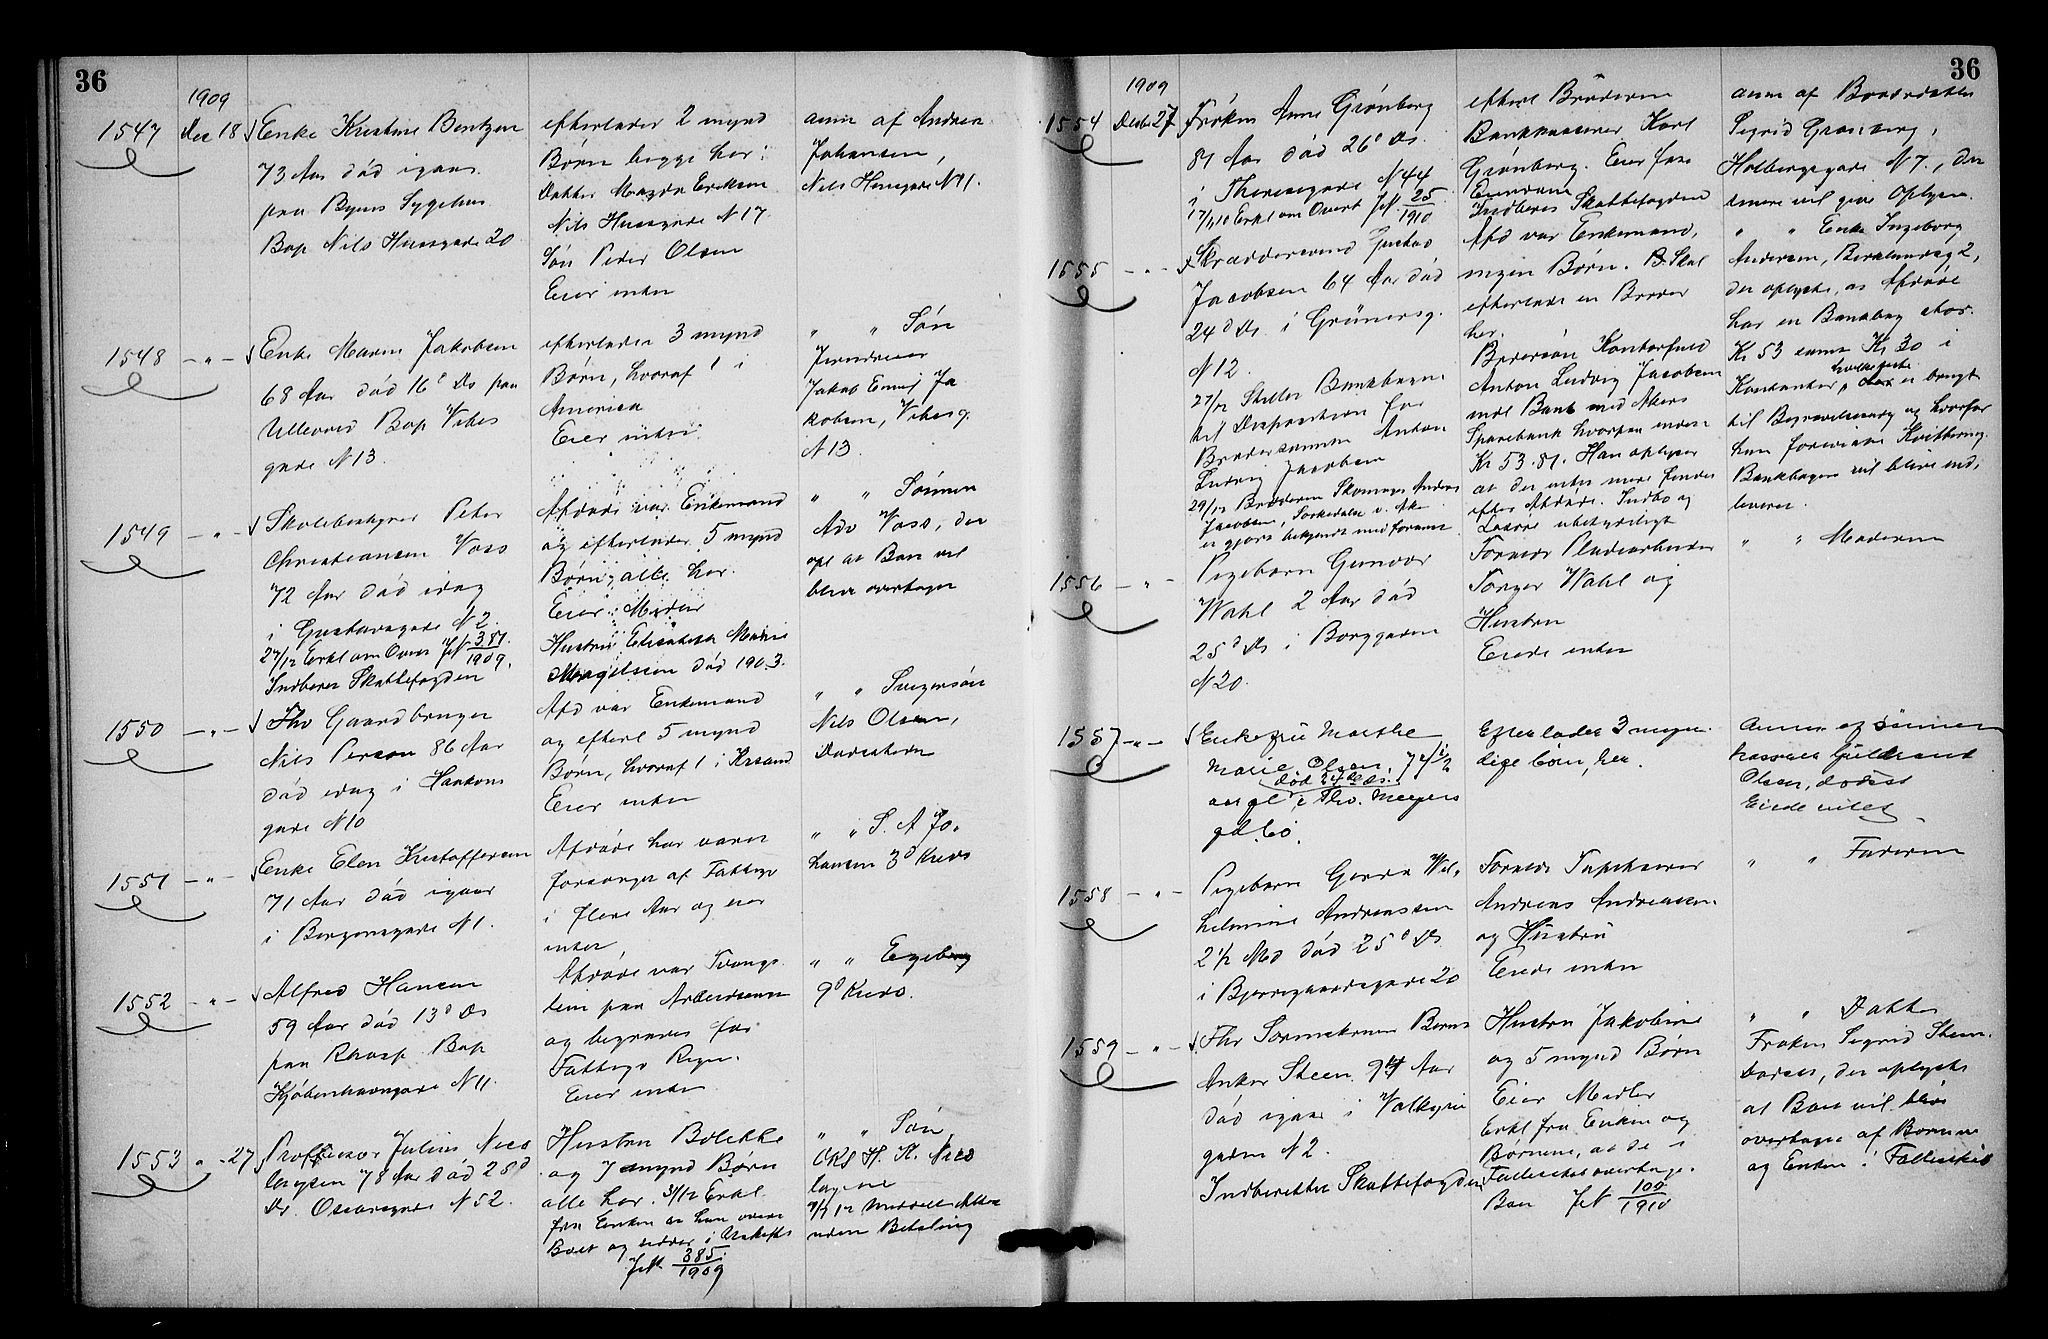 36
1909
1547 Dec 18 Enke Kristine Bentzen
73 Aar død igaar
paa Byens Sygehus
Bop Nils Huusgade 20
efterlader 2 mynd
Børn begge her:
Datter Magda Eriksen
Nils Huusgade N 17
Søn Peder Olsen
Eier intet
anm af Andrea
Johansen,
Nils Huusgade N 11.
1548 - " - Enke Maren Jakobsen
68 Aar død 16d Ds paa
Ullevaal Bop Vibes
gade N 13
efterlader 3 mynd
Børn, hvoraf 1 i
America
Eier intet
" " Søn
Jakob Emil Ja
kobsen, Vibesg
N 13.
1549 - " - Skolebestyrer Peter
Christiansen Voss
72 Aar død idag
i Gustavsgade N 2.
27/12 Erkl om Overt JN 381/1909.
Indberet Skattefogden
Afdøde var Enkemand
og efterlader 5 mynd
Børn, alle her.
Eier Midler
Hustru Elisabeth Marie
Magelssen død 1903.
" " Sønnen
Adv Voss, der
opl at Boet vil
blive overtaget
1550 - " - Fhv Gaardbruger
Nils Person 86 Aar
død idag i Haakons
gade N 10
Afd var Enkemand
og efterl 5 mynd
Børn, hvoraf 1 i Krsand
Eier intet
" " Svigersøn
Nils Olsen,
1551 - " - Enke Elen Kristoffersen
71 Aar død igaar
i Bergensgade N 1.
Afdøde har været
forsørget af Fattigv
i flere Aar og eier
intet
" " S. A Jo,
hansen 3d Kreds
1552 - " - Alfred Hansen
59 Aar død 13d Ds
paa Bop
Kjøbenhavngade N 11.
Afdøde var Tvangs
lem paa
og begraves for
Fattigv Regn.
Eier intet
" " Egeberg
9d Kreds.
1553 " - 27 Proffessor Julius Nico
laysen 78 Aar død 25d
Ds. Oscarsgade N 52.
Hustru Bolette
og 7 mynd Børn
alle her. 31/12 Erkl.
fra Enken at hun overt
Boet og sidder i Uskifte
JN 385/1909
" " Søn
ORS H. K. Nico
laysen
uden Betaling
36
1909
1554 Decbr 27 Frøken Anne Grønberg
81 Aar død 26d Ds.
i Theresegade N 44
17/1 10 Erkl om Overt JN 25/1910
efterl Broderen
Bankkasserer Karl
Grønberg. Eier fast
Eiendom
Indberet Skattefogden
anm af Broderdatter
Sigrid Grønberg,
Holbergsgade N 7., der
senere vil give Oplysn.
1555 - " - Skræddersvend Gustav
Jacobsen 64 Aar død
24d Ds. i Grünersg.
N 12.
27/12 Stiller Bankbogen
til Disposition for
Brodersønnen Anton
Ludvig Jacobsen
29/12 Broderen Anders
Jacobsen, Sørkedalen v. Aker
er gjort bekjendt med foranst
Afd var Enkemand,
ingen Børn. Skal
efterlade en Broder
her.
Brodersøn Kontorfuld
Anton Ludvig Jacobsen
indl Bankbog med Akers
Sparebank hvorpaa indest
Kr 53.81. Han oplyser
at der intet mere findes
efter Afdøde. Indbo og
Løsøre ubetydeligt
" " Enke Ingeborg
Andersen, 2,
der oplyste, at Afdøde
har en Bankbog stor.
Kr 53 samt Kr 30 i
Kontanter, hvilke sidste er brugt
til Begravelsesudg og hvorfor
hun foreviste Kvittering.
Bankbogen vil blive ind,
leveret.
1556 - " - Pigebarn Gunvor
Wahl 2 Aar død
25d Ds i Borggaden
N 20.
Forældr Pladearbeider
Torger Wahl og
Hustru
Eiede intet
" " Moderen
1557 - " - Enkefru Marthe
Marie Olsen, 74 1/2
aar gl død 24de ds. i Thv. Meyers
gd 60.
Efterlader 3 myn
dige børn, her.
Anm. af sønnen
Olsen,
Eiede intet.
1558 - " - Pigebarn Gerda Wil,
helmine Andreassen
2 1/2 Md død 25d Ds
i Bjerregaardsgade 20
Forældr Tapetserer
Andreas Andreassen
og Hustru
Eiede intet
" " Faderen
1559 - " - Fhv Sorenskriver Bernt
Anker Steen 94 Aar
død igaar i Valkyrie
gaden N 2.
Indberettet Skattefogden
Hustru Jakobine
og 5 mynd Børn
Eier Midler
Erkl fra Enken og
Børnene, at de i
Fælleskab overtage.
Boet JN 109/1910
" " Datter
Frøken Sigrid Steen.
der oplyste
at Boet vil blive
overtaget af Børnene
og Enken i Fælleskab